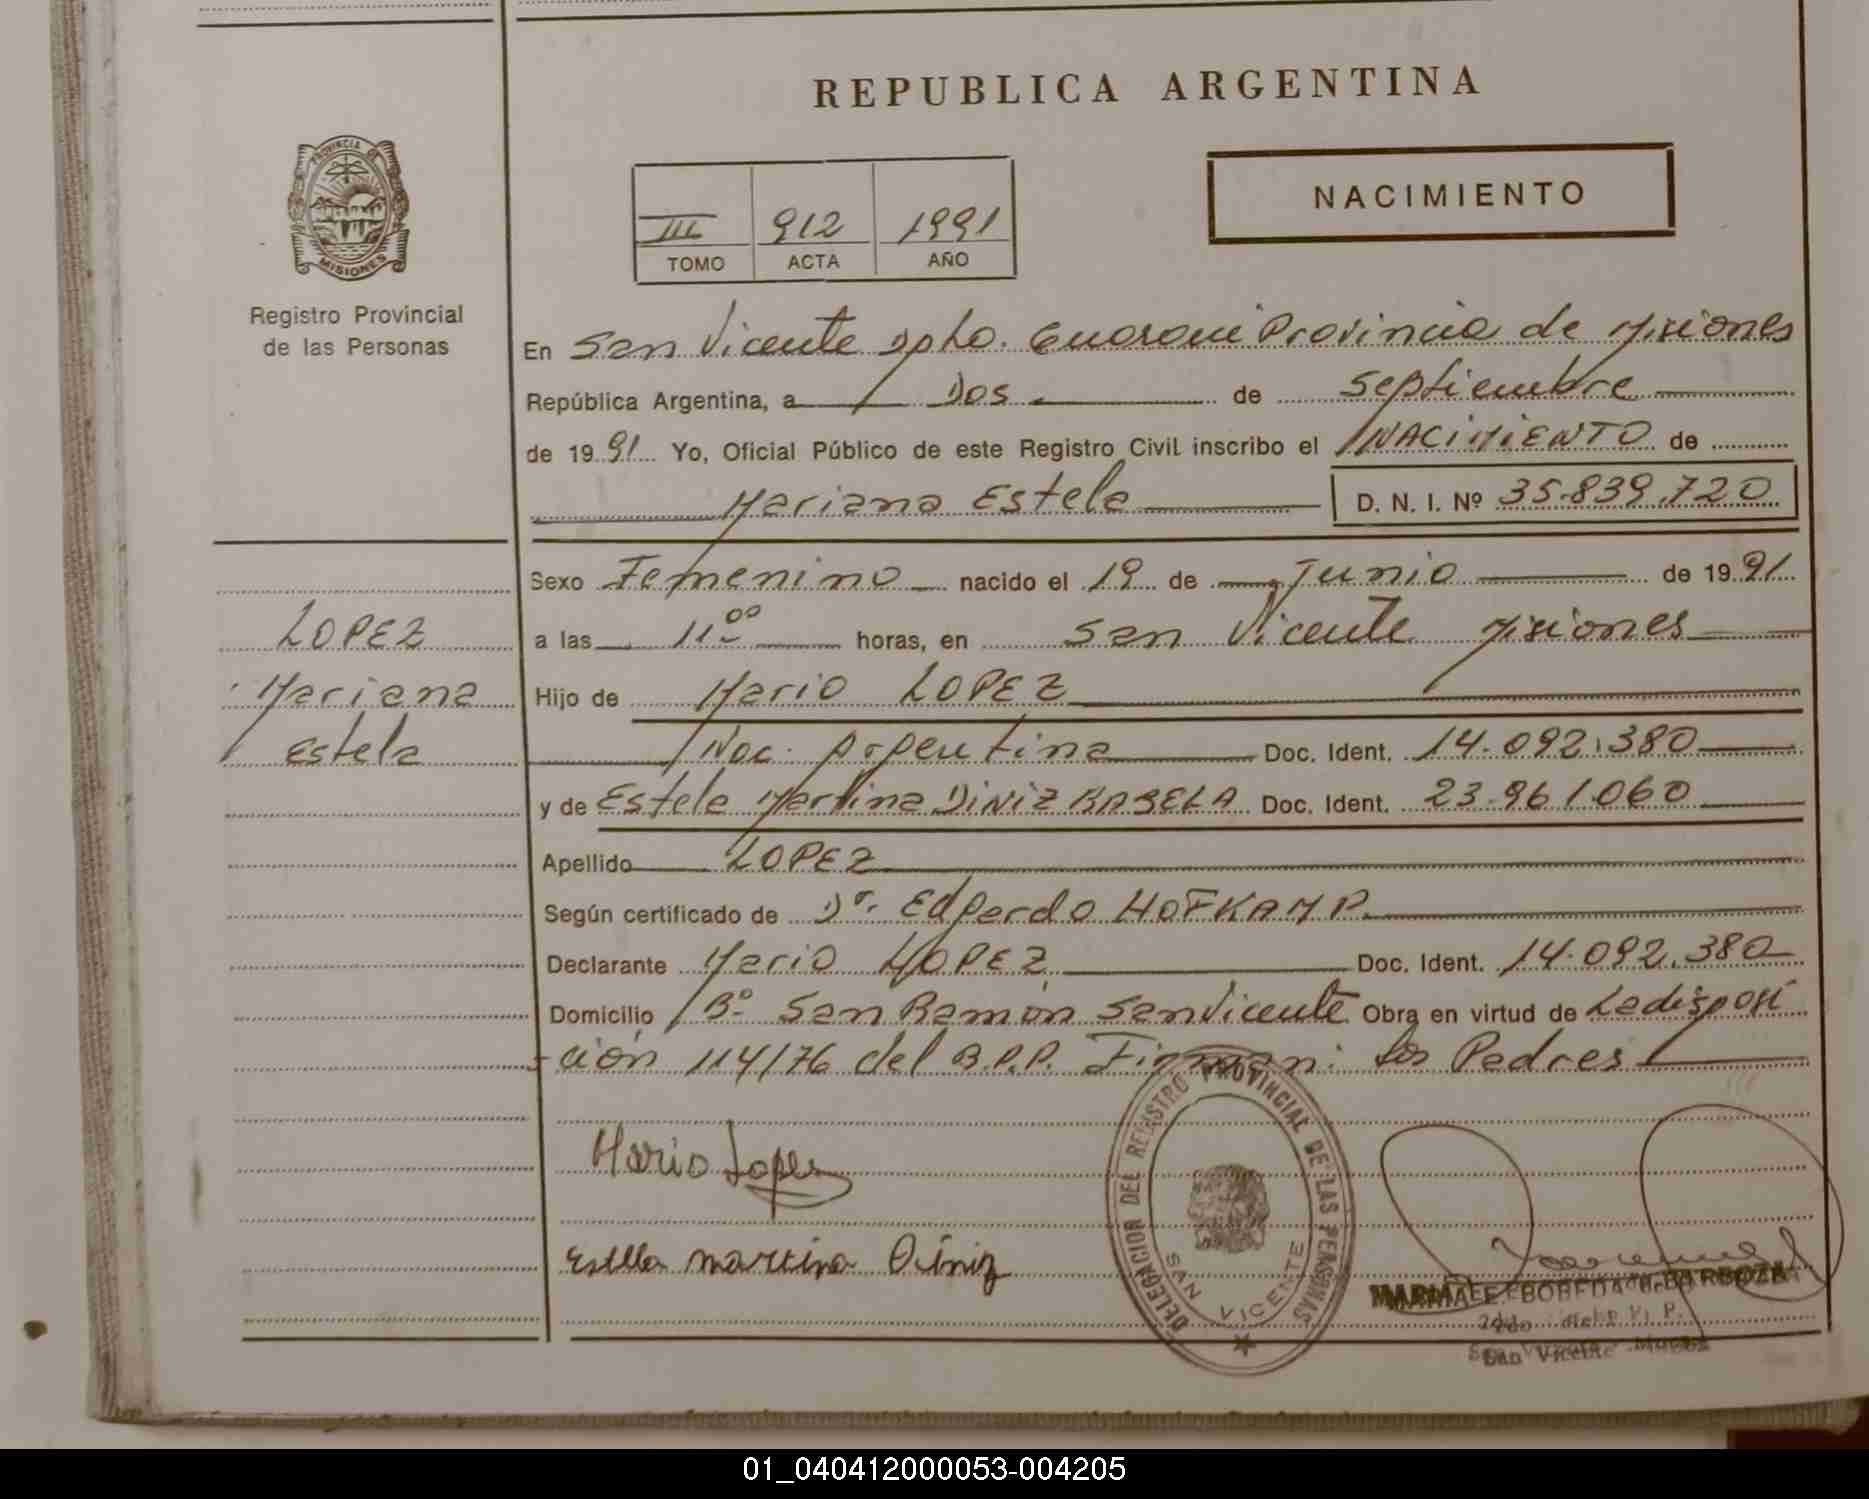 REPUBLICA ARGENTINA
PROVINCIA DE
MISIONES
Registro Provincial
de las Personas
NACIMIENTO
III 912 1991
TOMO ACTA AÑO
En San Vicente Dpto. Guarani Provincia de Misiones
República Argentina, a Dos de Septiembre
de 1991 Yo, Oficial Público de este Registro Civil inscribo el NACIMIENTO de
Mariana Estela D. N. I. Nº 35.839.720
Sexo Femenino nacido el 19 de Junio de 1991
LOPEZ
Mariana
Estela
a las 11.00 horas, en San Vicente Misiones
Hijo de Mario LOPEZ
Nac. Argentina Doc. Ident. 14.092.380
y de Estela Martina DINIZ Doc. Ident. 23.961.060
Apellido LOPEZ
Según certificado de Dr. Edgardo HOFKAMP
Declarante Mario LOPEZ Doc. Ident. 14.092.380
Domicilio Bº San Ramón San Vicente Obra en virtud de La disposi
-ción 114/76 del R.P.P. Firman: los Padres
Mario Lopes
Estella martina Diniz
DELEGACION DEL REGISTRO PROVINCIAL DE LAS PERSONAS
SAN VICENTE
BARBOZA
San Vicente
01_040412000053-004205